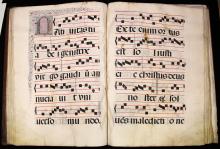 Natiuitas tu
a dei genitrix
uirgo gaudiū an
nunciauit uni
uerso mundo
Ex te enim ortus
est sol iusti
cie christus deus
noster sol
uēs maledictione